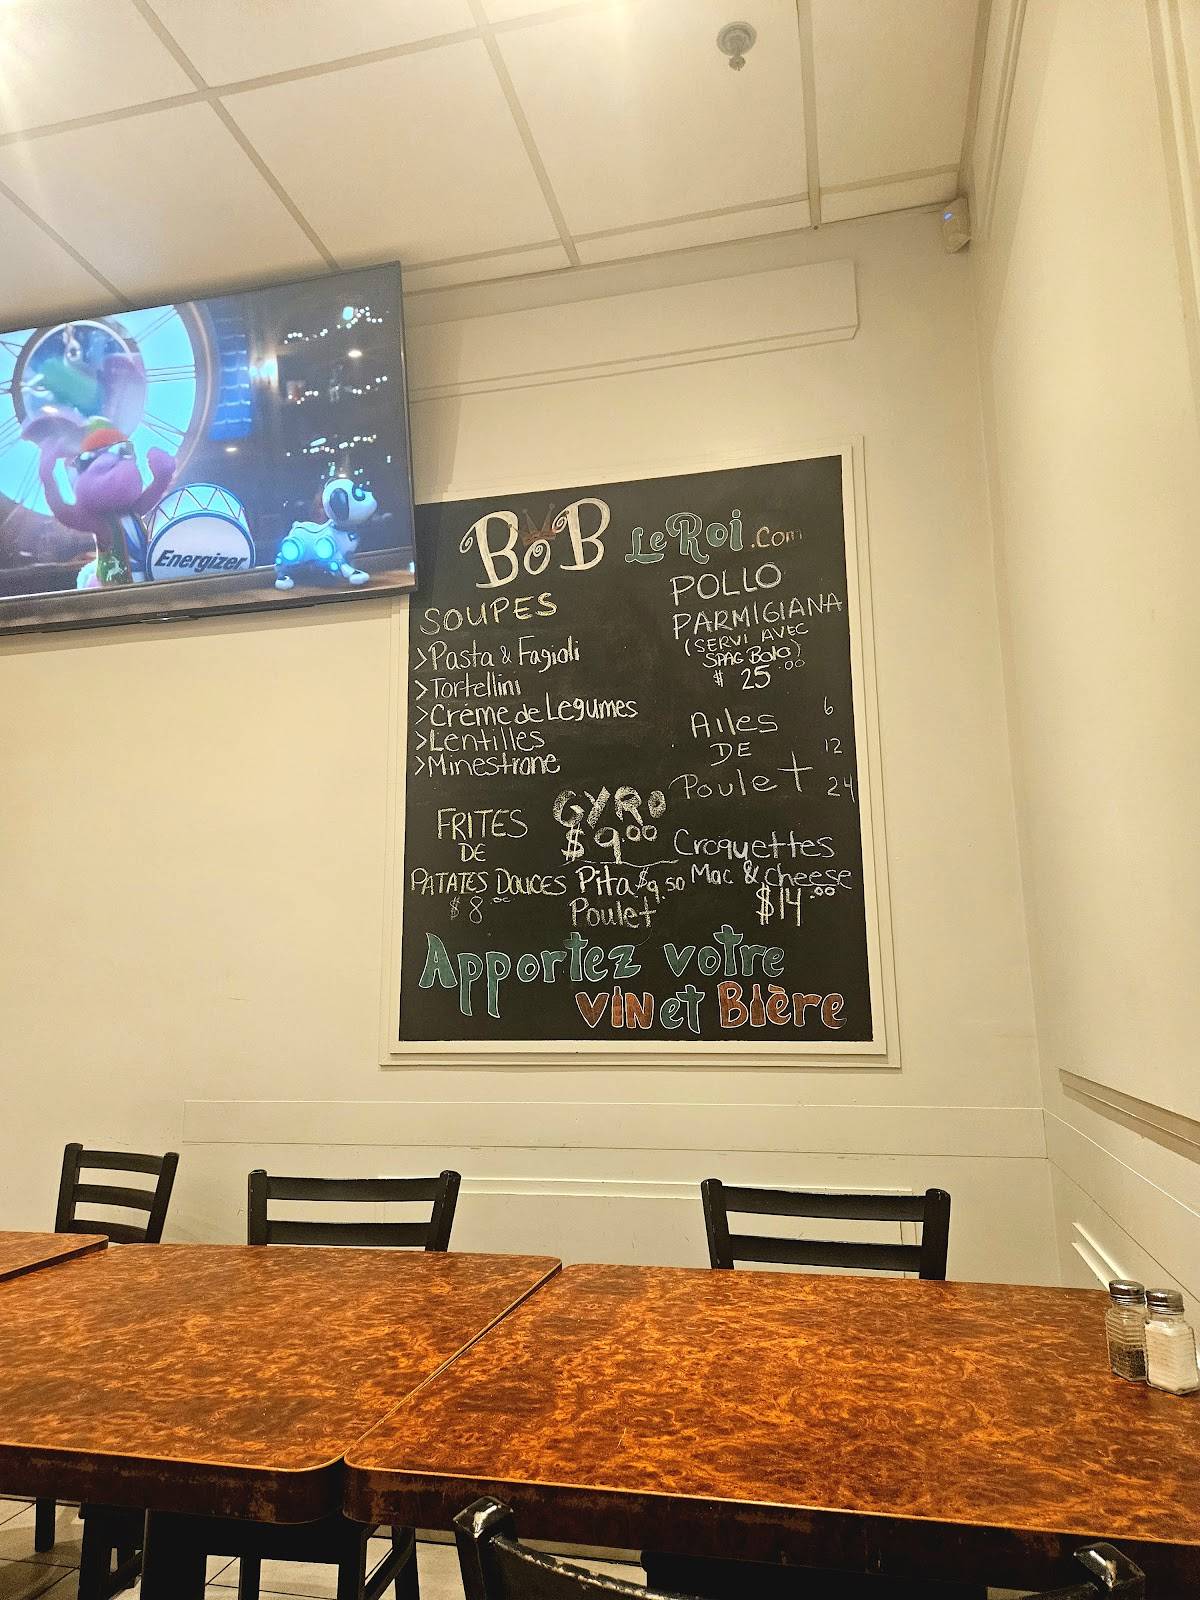 Energizer
BoB LeRoi.com
SOUPES
>Pasta & Fagioli
>Tortellini
>Crème de Légumes
>Lentilles
>Minestrone
POLLO
PARMIGIANA
(SERVI AVEC
SPAG Bolo)
$ 25.00
AILES 6
DE 12
Poulet 24
FRITES
DE
PATATES DOUCES
$8.00
GYRO
$9.00
Pita $9.50
Poulet
Croquettes
Mac & cheese
$14.00
Apportez votre
VIN et Bière